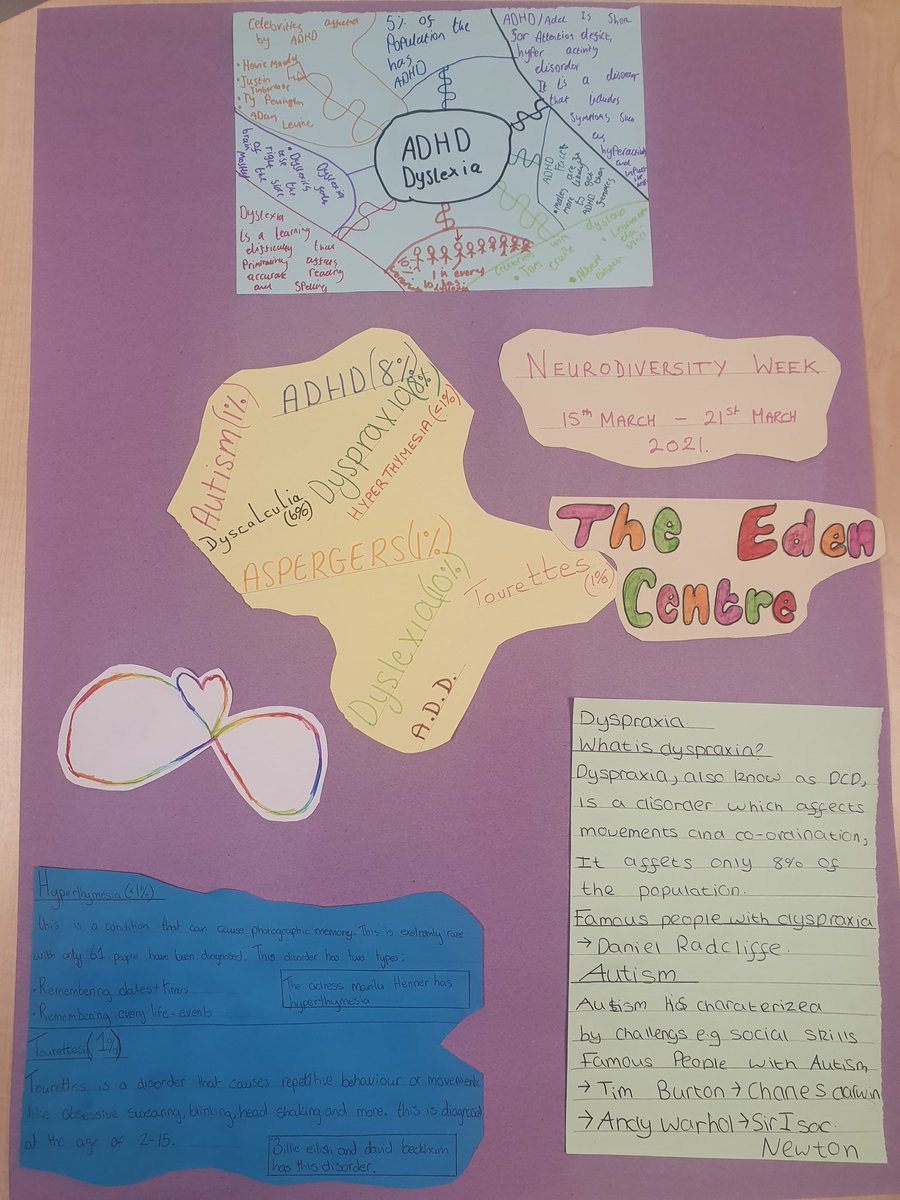 Celebrities affected
by ADHD
• Howie Mandy
• Justin
Timberlake
• Ty Penington
• Adam Levine
5% of
Population the
has
ADHD
ADHD/Add Is Shor
for Attention defict,
hyper activity
disorder
It is a disorder
that Includes
Symptoms Such
as
hyperactive
and
ADHD
Dyslexia
ADHD
Facts
• Males are 3x
more likely
to get
ADHD than
females
Dyslexia
• Dyslexics
use the
right side
of the
brain mostly
Dyslexia
Is a learning
difficulty that
Primarily affects
accurate reading
and Spelling
1 in every
10
celebrities with dyslexia
• Tom Cruise
• Leonardo
da
vini
• Albert
einstein
NEURODIVERSITY WEEK
15th MARCH - 21st MARCH
2021.
Autism (1%)
ADHD (8%)
Dyspraxia (8%)
HYPERTHYMESIA (<1%)
Dyscalculia
(6%)
ASPERGERS (1%)
Dyslexia (10%)
Tourettes
(1%)
A.D.D.
The Eden
Centre
Dyspraxia.
What is dyspraxia?
Dyspraxia, also know as DCD,
is a disorder which affects
movements and co-ordination,
It affets only 8% of
the population.
Famous people with dyspraxia
→ Daniel Radcliffe.
Autism
Autism is charaterized
by challengs e.g social skills
Famous People with Autism
→ Tim Burton → Charles darwin
→ Andy Warhol → Sir Isac
Newton
Hyperthymesia (<1%)
this is a condition that can cause photographic memory. This is exetremly rare
with only 61 people have been diagnosed. This disorder has two types:
• Remembering dates+times
• Remembering every life-events
The actress Marilu Henner has
hyperthymesia
Tourettes (1%)
Tourettes is a disorder that causes repetitive behaviour or movements
like obsessive swearing, blinking, head shaking and more. this is diagnosed
at the age of 2-15.
Billie eilish and david beckham
has this disorder.